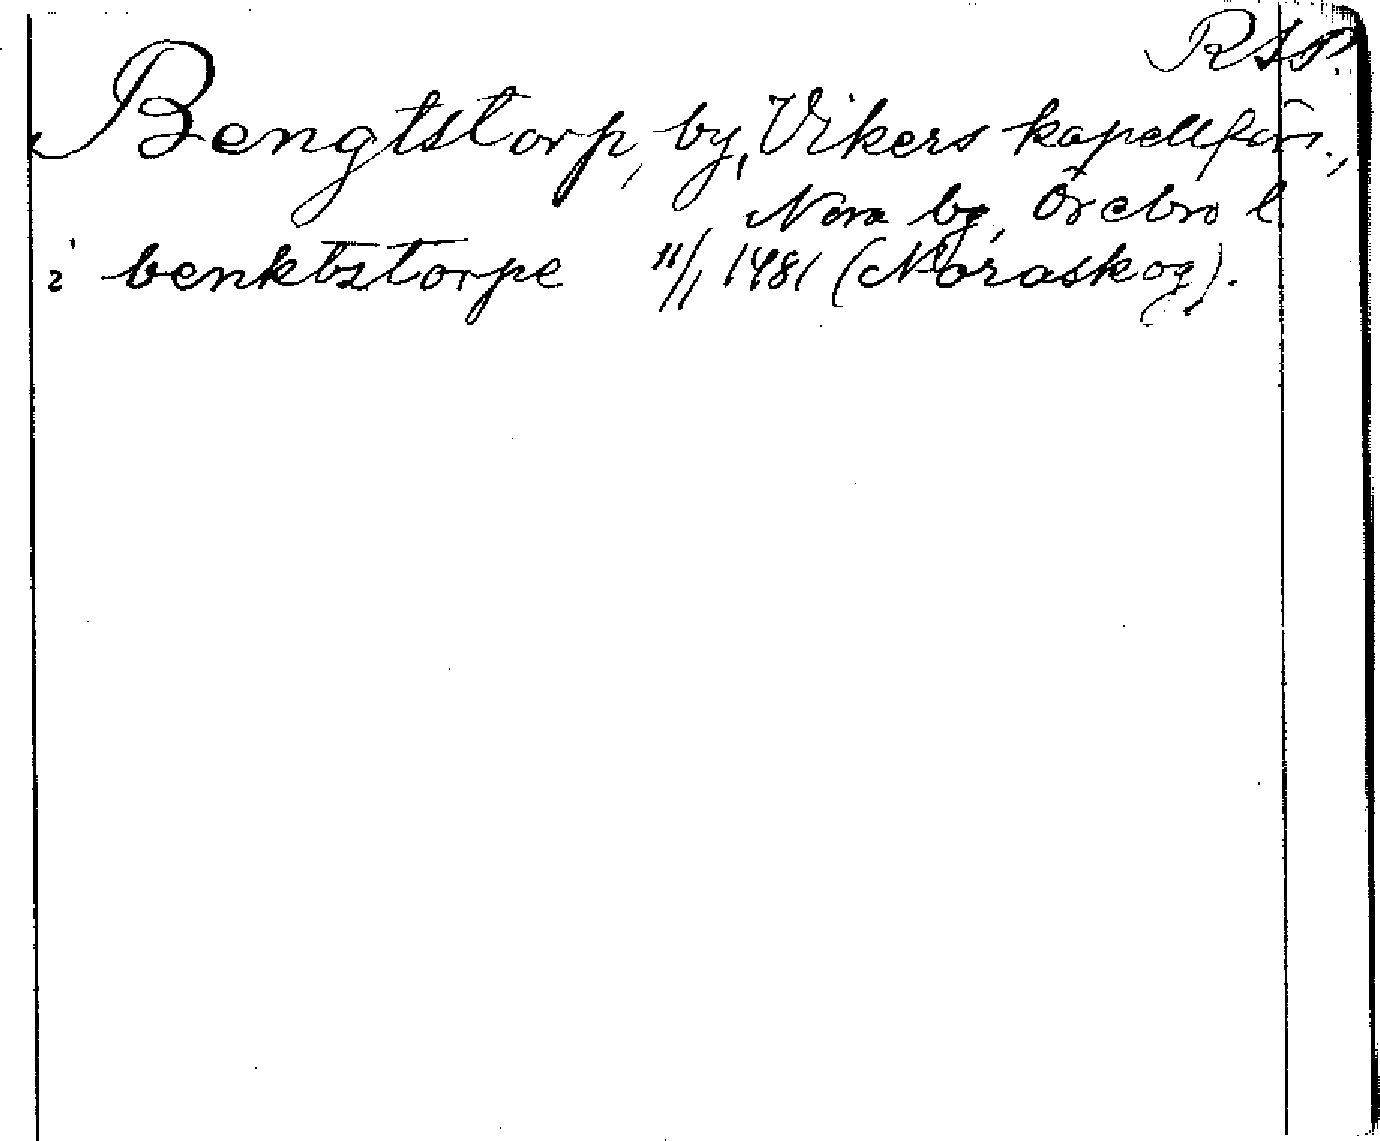 RSP.
Bengtstorp, by, Vikers kapellförs.,
Nora bg, Örebro l
i benktstorpe 11/1 1481 (Noraskog).